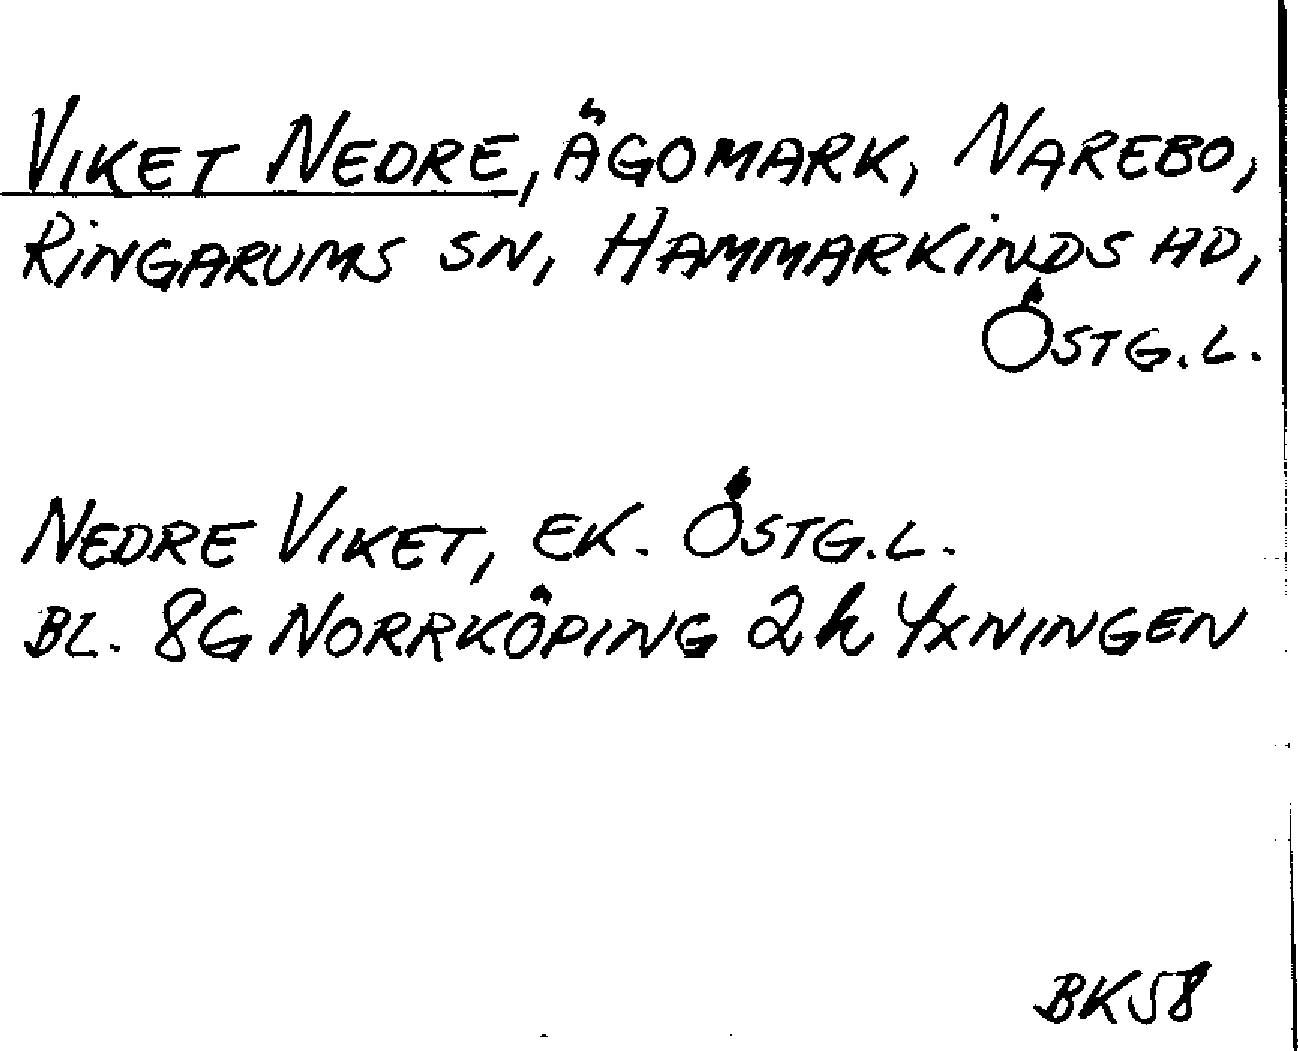 VIKET NEDRE, ÄGOMARK, NAREBO,
RINGARUMS SN, HAMMARKINDS HD,
ÖSTG.L.
NEDRE VIKET, EK. ÖSTG.L.
BL. 8G NORRKÖPING 2h YXNINGEN
BK58